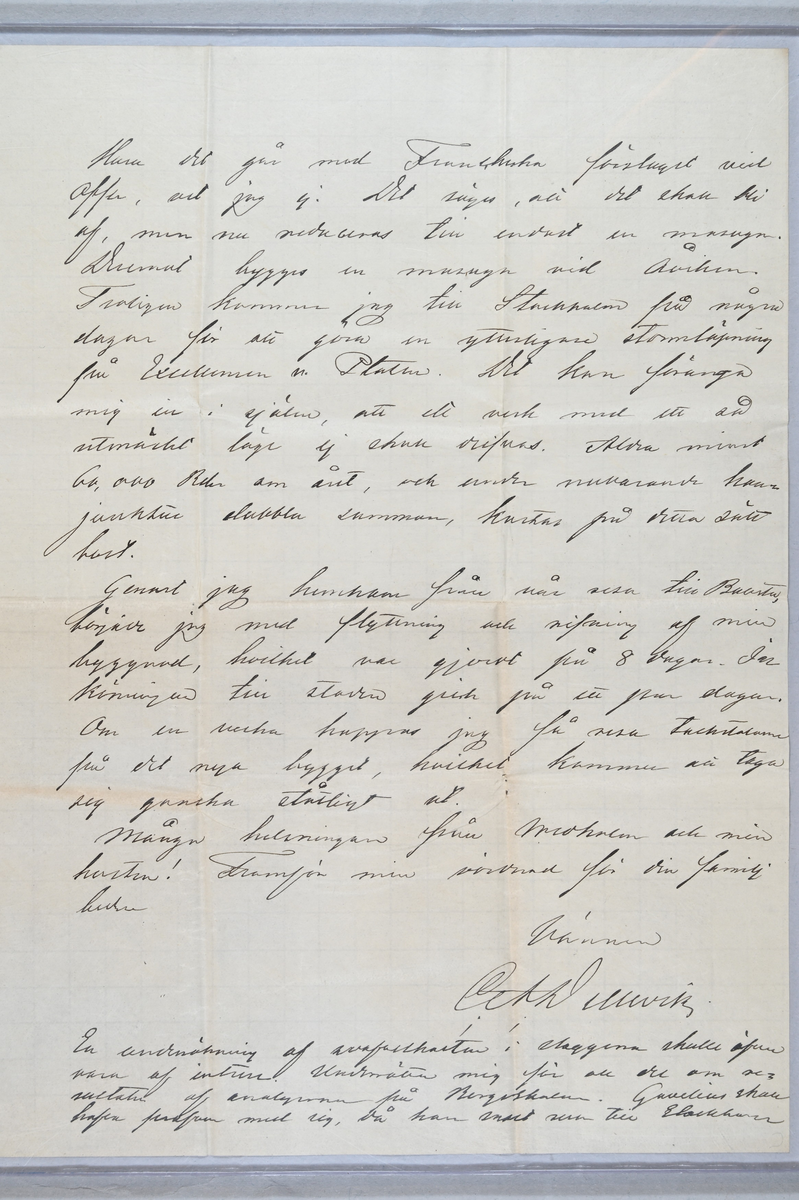 Huru det går med Franska förslaget vid
Offer, vet jag ej. Det säges, att det skall bli
af, men nu reduceras till endast en masugn.
Deremot bygges en masugn vid Åviken.
Troligen kommer jag till Stockholm på några
dagar för att göra en ytterligare stormlöpning
på Excellensen v. Platen. Det kan förarga
mig in i själen, att ett verk med ett så
utmärkt läge ej skall drifvas. Aldra minst
60,000 Rdr om året, och under nuvarande kon-
junktur dubbla summan, kastas på detta sätt
bort.
Genast jag hemkom från vår resa till
började jag med flyttning och rifning af min
byggnad, hvilket var gjordt på 8 dagar.
körningen till staden gick på ett par dagar.
Om en vecka hoppas jag få resa takstolarne
på det nya bygget, hvilket kommer att taga
sig ganska ståtligt ut.
Många helsningar från och min
hustru! Framför min vördnad för din familj
Vännen
En undersökning af svafvelhalten i slaggerna skulle äfven
vara af intresse. Underrätta mig för all del om re-
sultatet af analyserna på Bergsskolan. skall
hafva profven med sig, då han rest ner till Stockholm